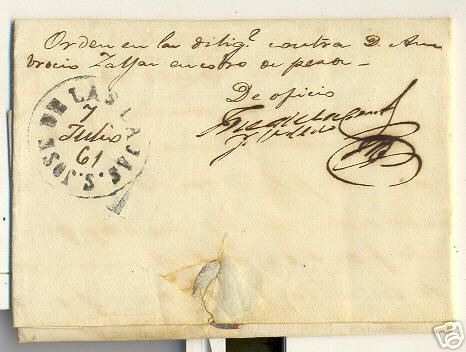 Orden en las dilig.ª contra D. Am
brocio Zallar en cobro de pesos
De oficio
S. JOSE DE LAS LAJAS.
7
Julio
61
ebY